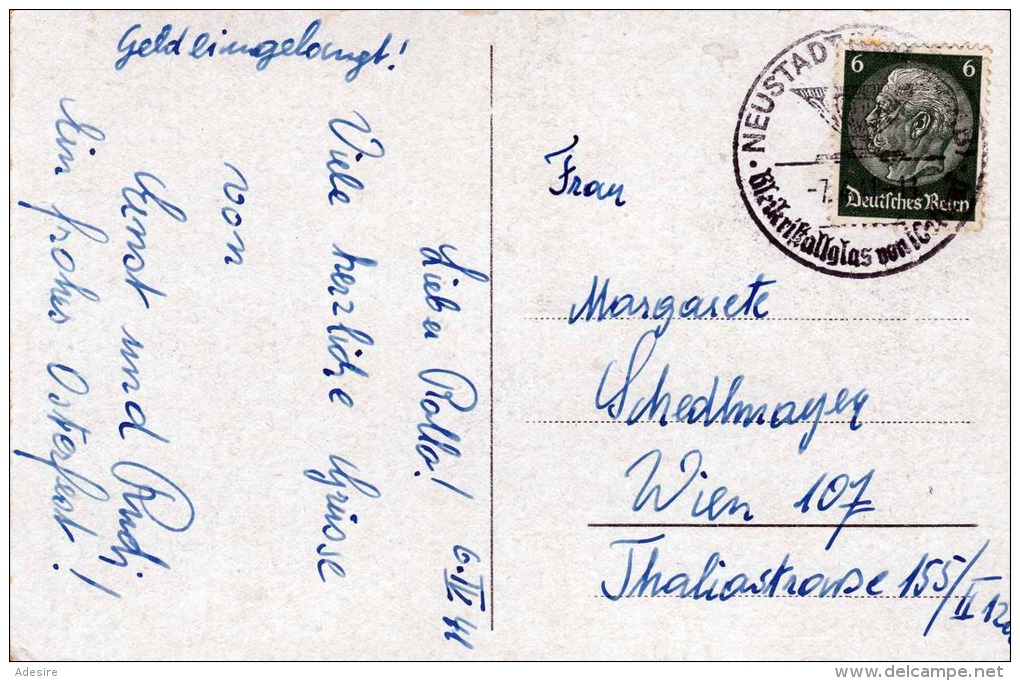 Geld eingelangt!
6. IV 41
Lieber Rollo!
Viele herzliche Grüsse
von
Ernst und Rudi
Ein frohes Osterfest!
6 6
Deutsches Reich
NEUSTADT
-7.
Bleikristallglas von
Frau
Margarete
Schedlmayer
Wien 107
Thaliastrasse 155/II
Adesire
www.delcampe.net